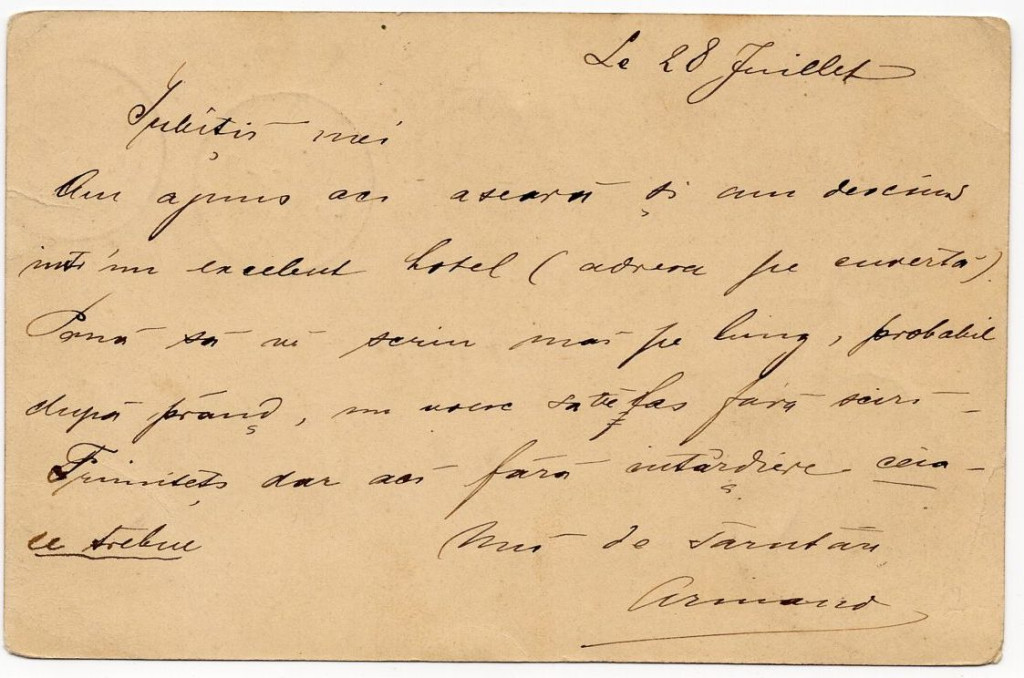 Le 28 Juillet
Iubiții mei
Am ajuns aci aseară și am descins
într'un excelent hotel (adresa pe cuvertă).
Până să vĕ scriu mai pe lung, probabil
după prânḑ, nu voesc să vĕ las fără sciri
Trimiteți dar aci fără întârḑiere ceia
ce trebue Mii de sărutări
Armand